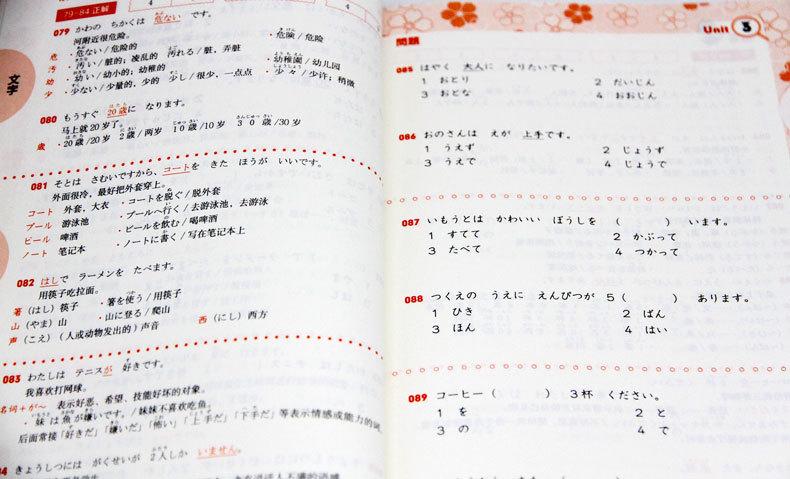 79-84正解
4
079 かわの ちかくは 危ない です。
河附近很危险。
危 ・危ない/危险的 ・危険/危险
汚 ・汚い/脏的;凌乱的 汚れる/脏,弄脏
幼 ・幼い/幼小的;幼稚的 ・幼稚園/幼儿园
少 ・少ない/少量的,少的 少し/很少,一点点 ・少々/少许;稍微
080 もうすぐ 20歳に なります。
马上就20岁了。
歳 ・20歳/20岁 2歳/两岁 10歳/10岁 30歳/30岁
081 そとは さむいですから、コートを きた ほうが いいです。
外面很冷,最好把外套穿上。
コート 外套,大衣 ・コートを脱ぐ/脱外套
プール 游泳池 ・プールへ行く/去游泳池,去游泳
ビール 啤酒 ・ビールを飲む/喝啤酒
ノート 笔记本 ・ノートに書く/写在笔记本上
082 はしで ラーメンを たべます。
用筷子吃拉面。
箸(はし)筷子 ・箸を使う/用筷子
山(やま)山 ・山に登る/爬山
声(こえ)(人或动物发出的)声音 西(にし)西方
083 わたしは テニスが 好きです。
我喜欢打网球。
名词+が~ 表示好恶、希望、技能好坏的对象。
・妹は魚が嫌いです。/妹妹不喜欢吃鱼。
后面常接「好きだ」「嫌いだ」「怖い」「上手だ」「下手だ」等表示情感或能力的词
84 きょうしつには がくせいが 2人しか いません。
文字
Unit 3
問題
085 はやく 大人に なりたいです。
1 おとり 2 だいじん
3 おとな 4 おおじん
086 おのさんは えが 上手です。
1 うえず 2 じょうず
3 うえで 4 じょうで
087 いもうとは かわいい ぼうしを ( ) います。
1 すてて 2 かぶって
3 たべて 4 つかって
088 つくえの うえに えんぴつが 5( ) あります。
1 ひき 2 ばん
3 ほん 4 はい
089 コーヒー( ) 3杯 ください。
1 を 2 と
3 の 4 で